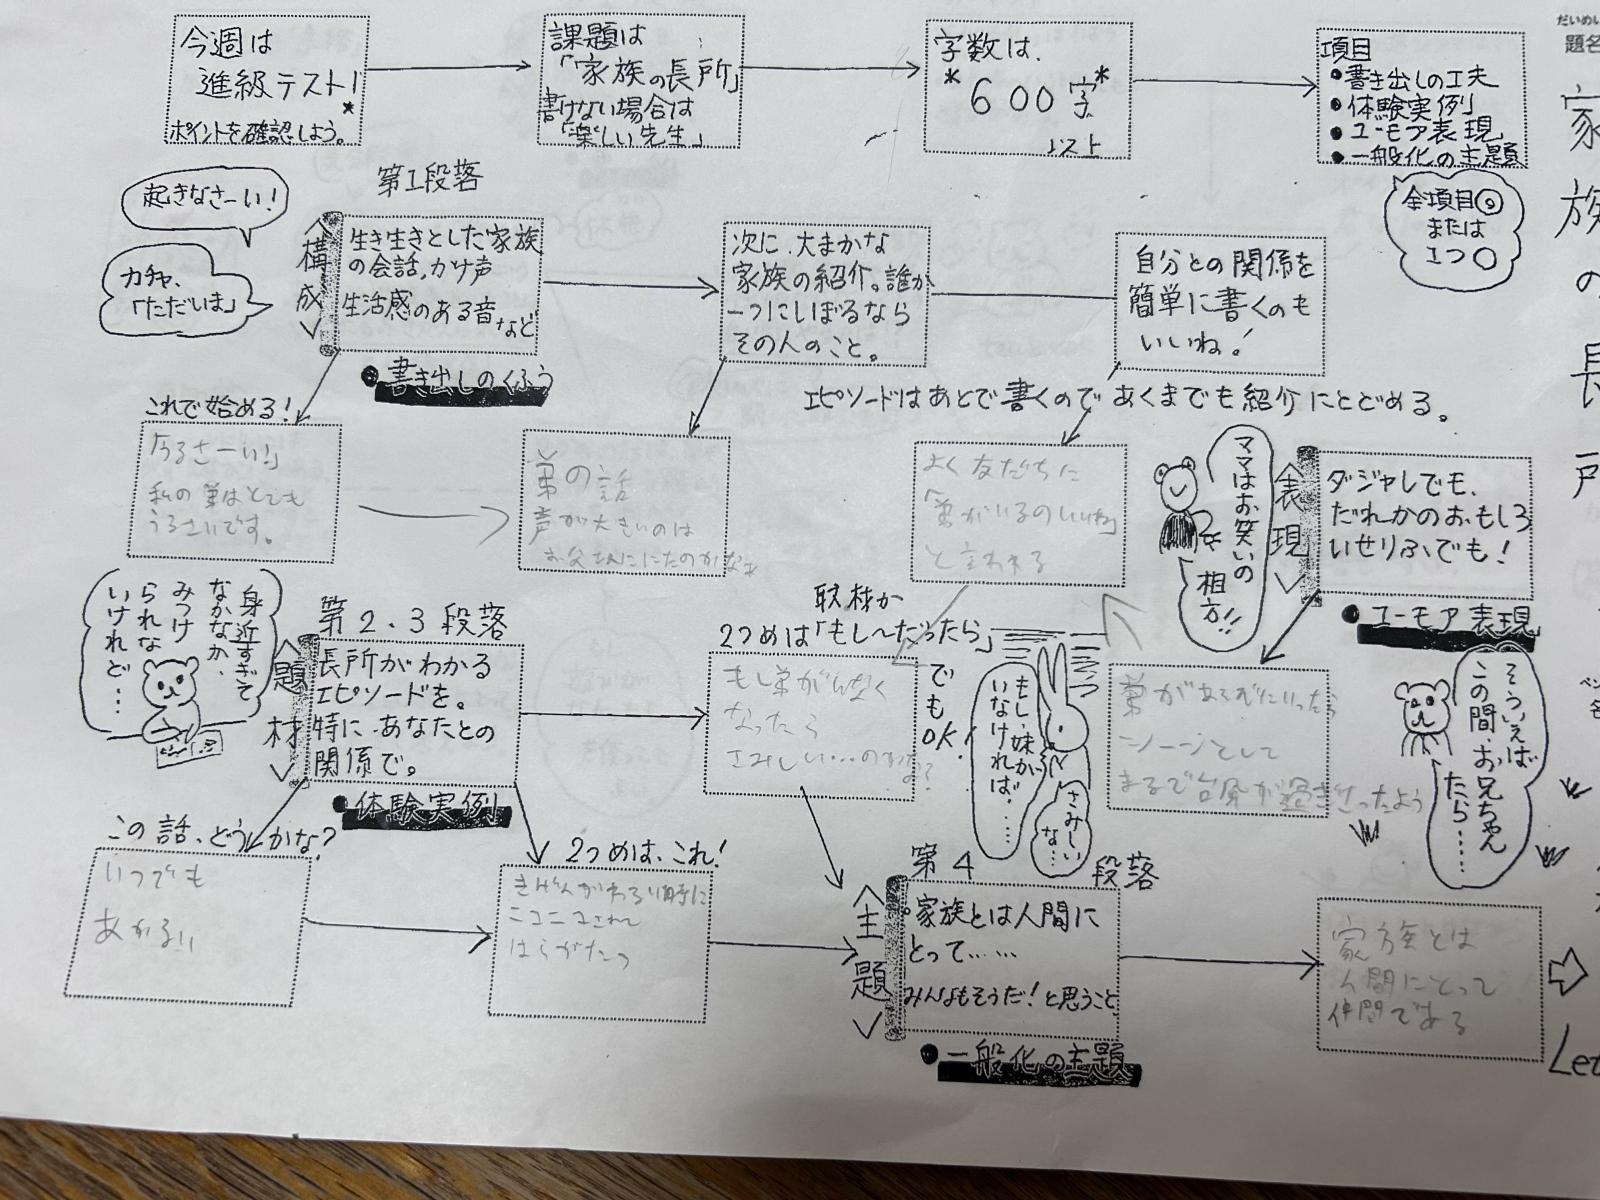 今週は
進級テスト!
*
ポイントを確認しよう。
課題は
「家族の長所」
書けない場合は
「楽しい先生」
字数は、
*600字*
以上
項目
●書き出しの工夫
●体験実例
●ユーモア表現
●一般化の主題
全項目◎
または
1つ○
だいめい
題名
家族の長所
起きなさーい!
カチャ、
「ただいま」
第1段落
<構成>
生き生きとした家族
の会話、かけ声
生活感のある音など
●書き出しのくふう
次に、大まかな
家族の紹介。誰か
一つにしぼるなら
その人のこと。
自分との関係を
簡単に書くのも
いいね!
エピソードはあとで書くので あくまでも紹介にとどめる。
これで始める!
「うるさーい!」
私の弟はとても
うるさいです。
弟の話
声が大きいのは
お父さんににたのかなぁ
よく友だちに
「弟がいるのいいね」
と言われる
ママはお笑いの
相方!!
<表現>
ダジャレでも、
だれかのおもしろ
いせりふでも!
●ユーモア表現
身近すぎて
なかなか、
みつけ
られな
いけれど…
第2.3段落
<題材>
長所がわかる
エピソードを。
特に、あなたとの
関係で。
●体験実例
取材か
2つめは「もし〜だったら」
でもOK!
もし弟がいなく
なったら
さみしい…のかな?
もし、妹が
いなければ、……
さみしい
な…
弟があそびにいったら
シーンとして
まるで台風が過ぎさったよう
そういえば
この間、お兄ちゃん
たら……
この話、どうかな?
いつでも
あかるい
2つめは、これ!
きげんがわるい時に
ニコニコされて
はらがたつ
第4段落
<主題>
家族とは人間に
とって……
みんなもそうだ!と思うこと
●一般化の主題
家族とは
人間にとって
仲間である
Let